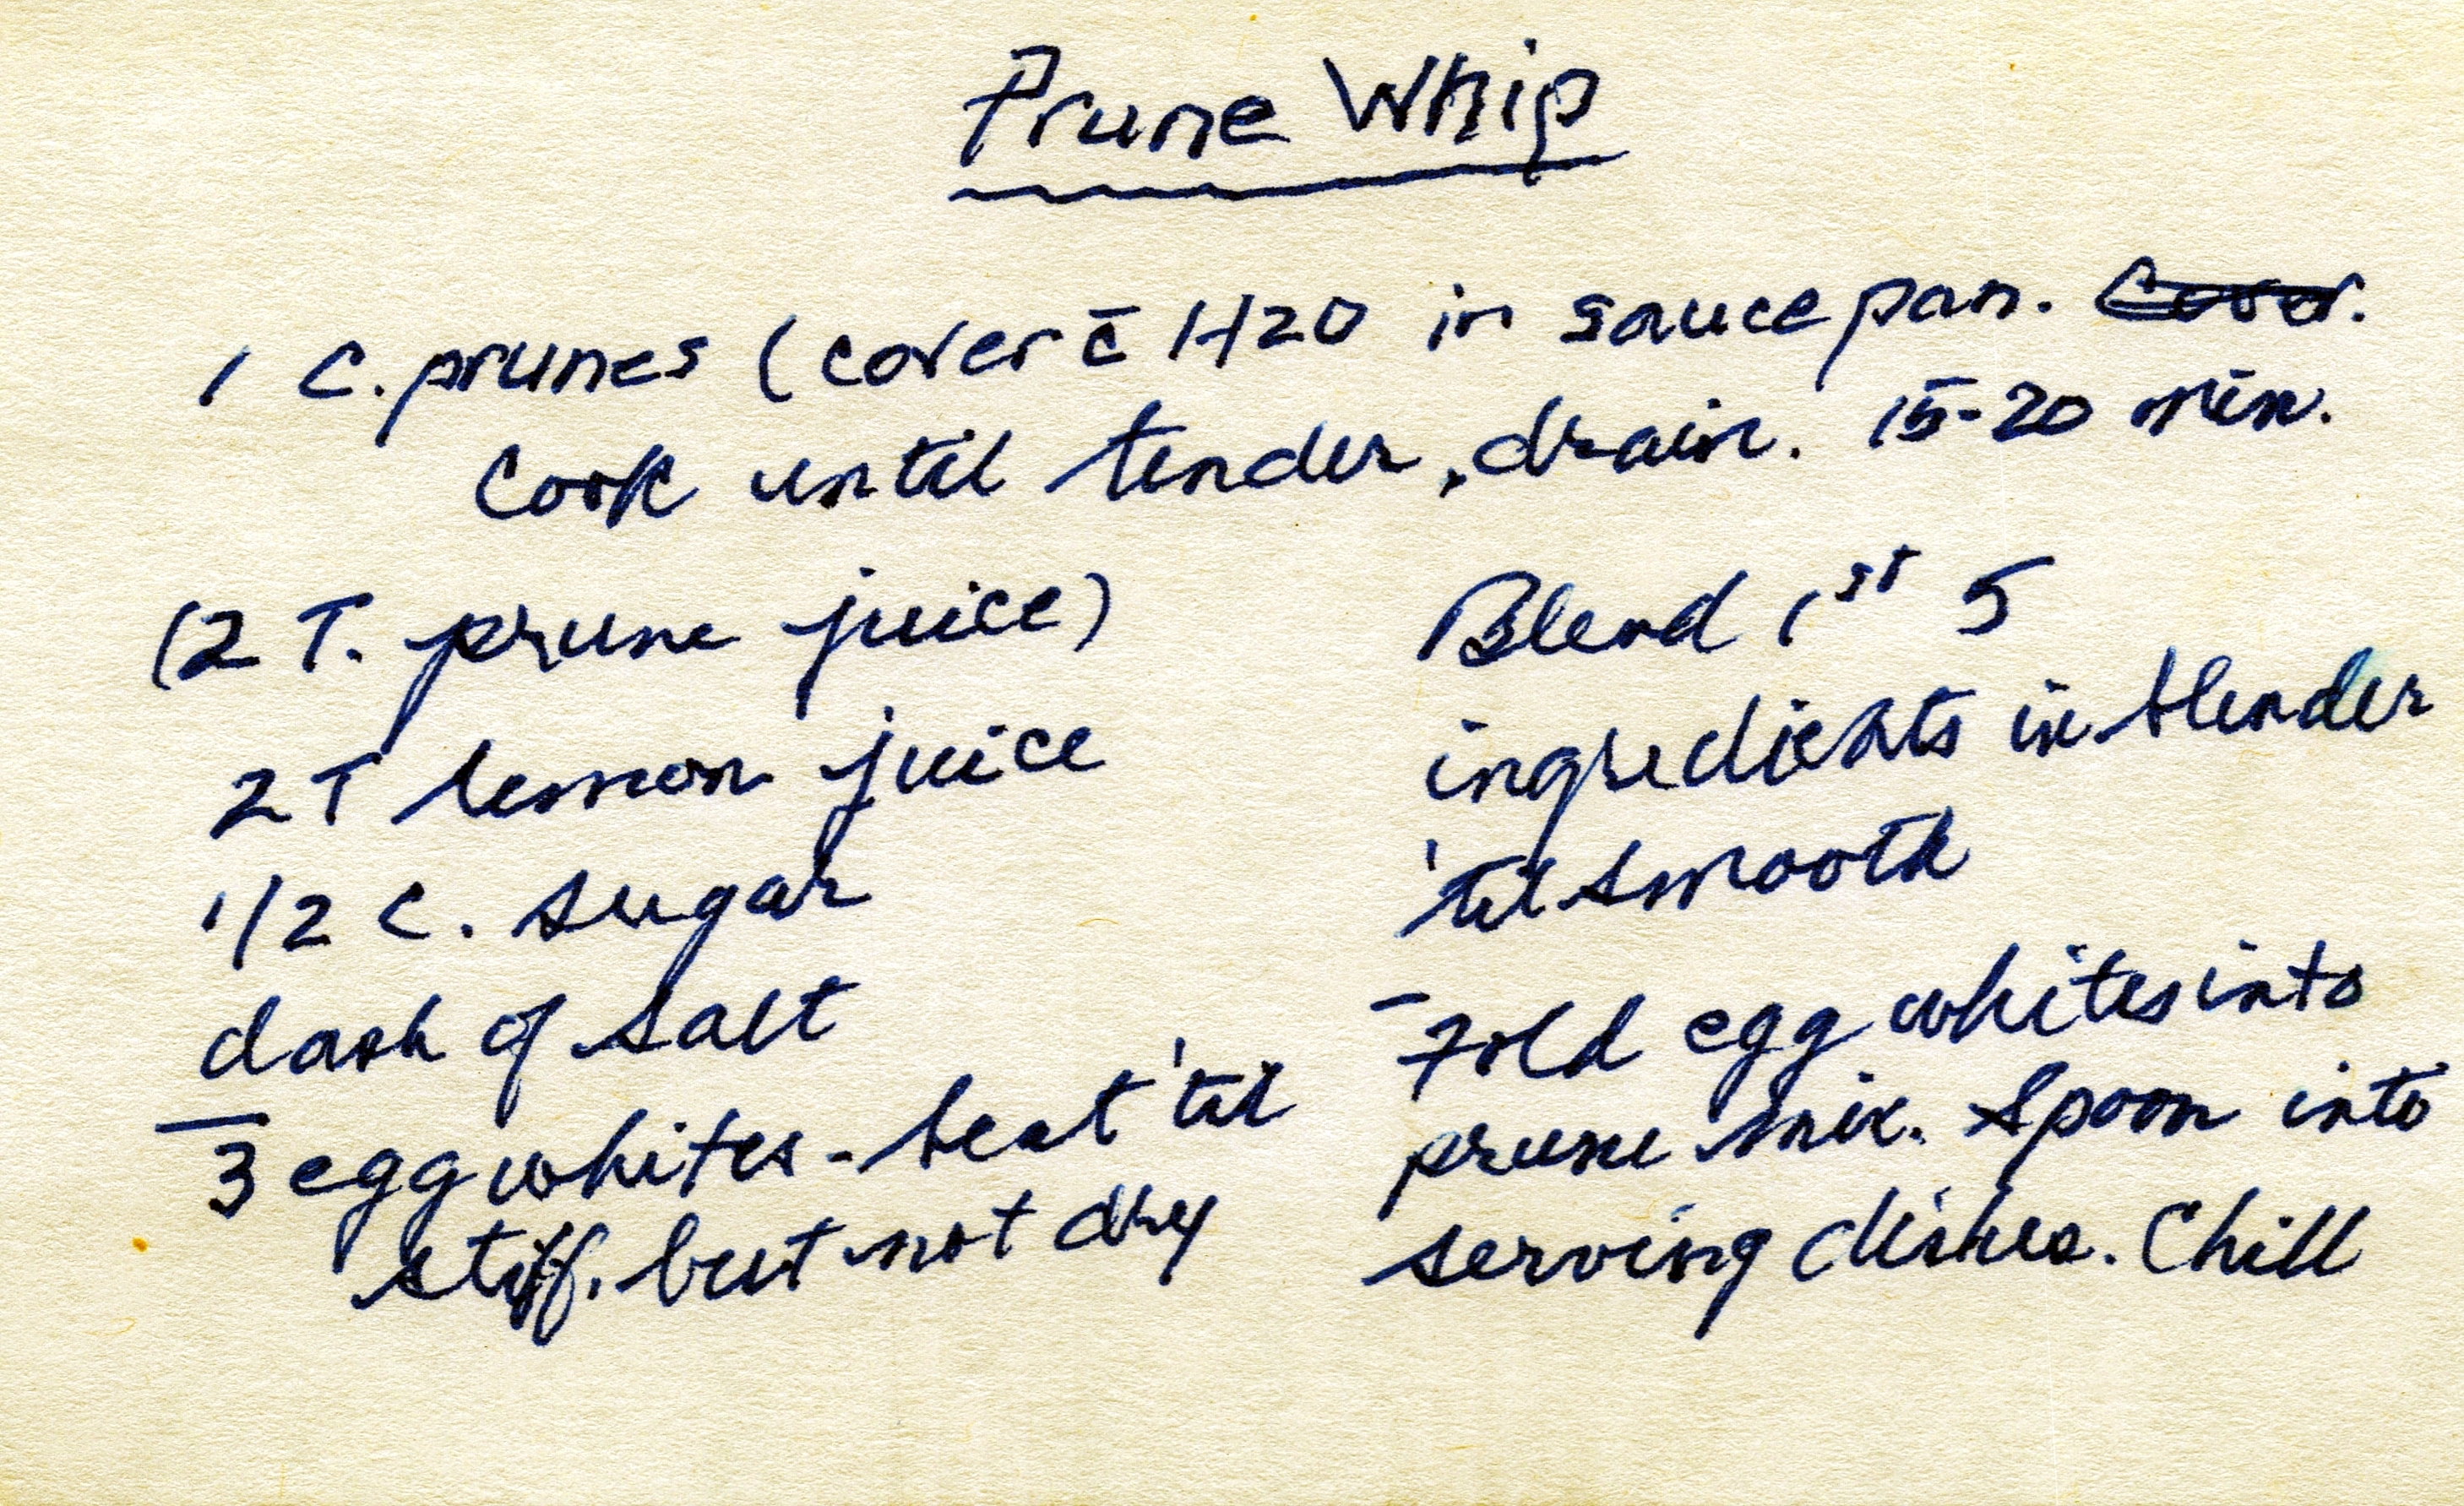 Prune Whip
1 C. prunes (cover c̄ H2O in saucepan. Cover.
Cook until tender, drain. 15-20 min.
(2 T. prune juice)
2 T lemon juice
1/2 C. sugar
dash of salt
3 egg whites - beat 'til
stiff, but not dry
Blend 1st 5
ingredients in blender
'til smooth
Fold egg whites into
prune mix. Spoon into
serving dishes. Chill